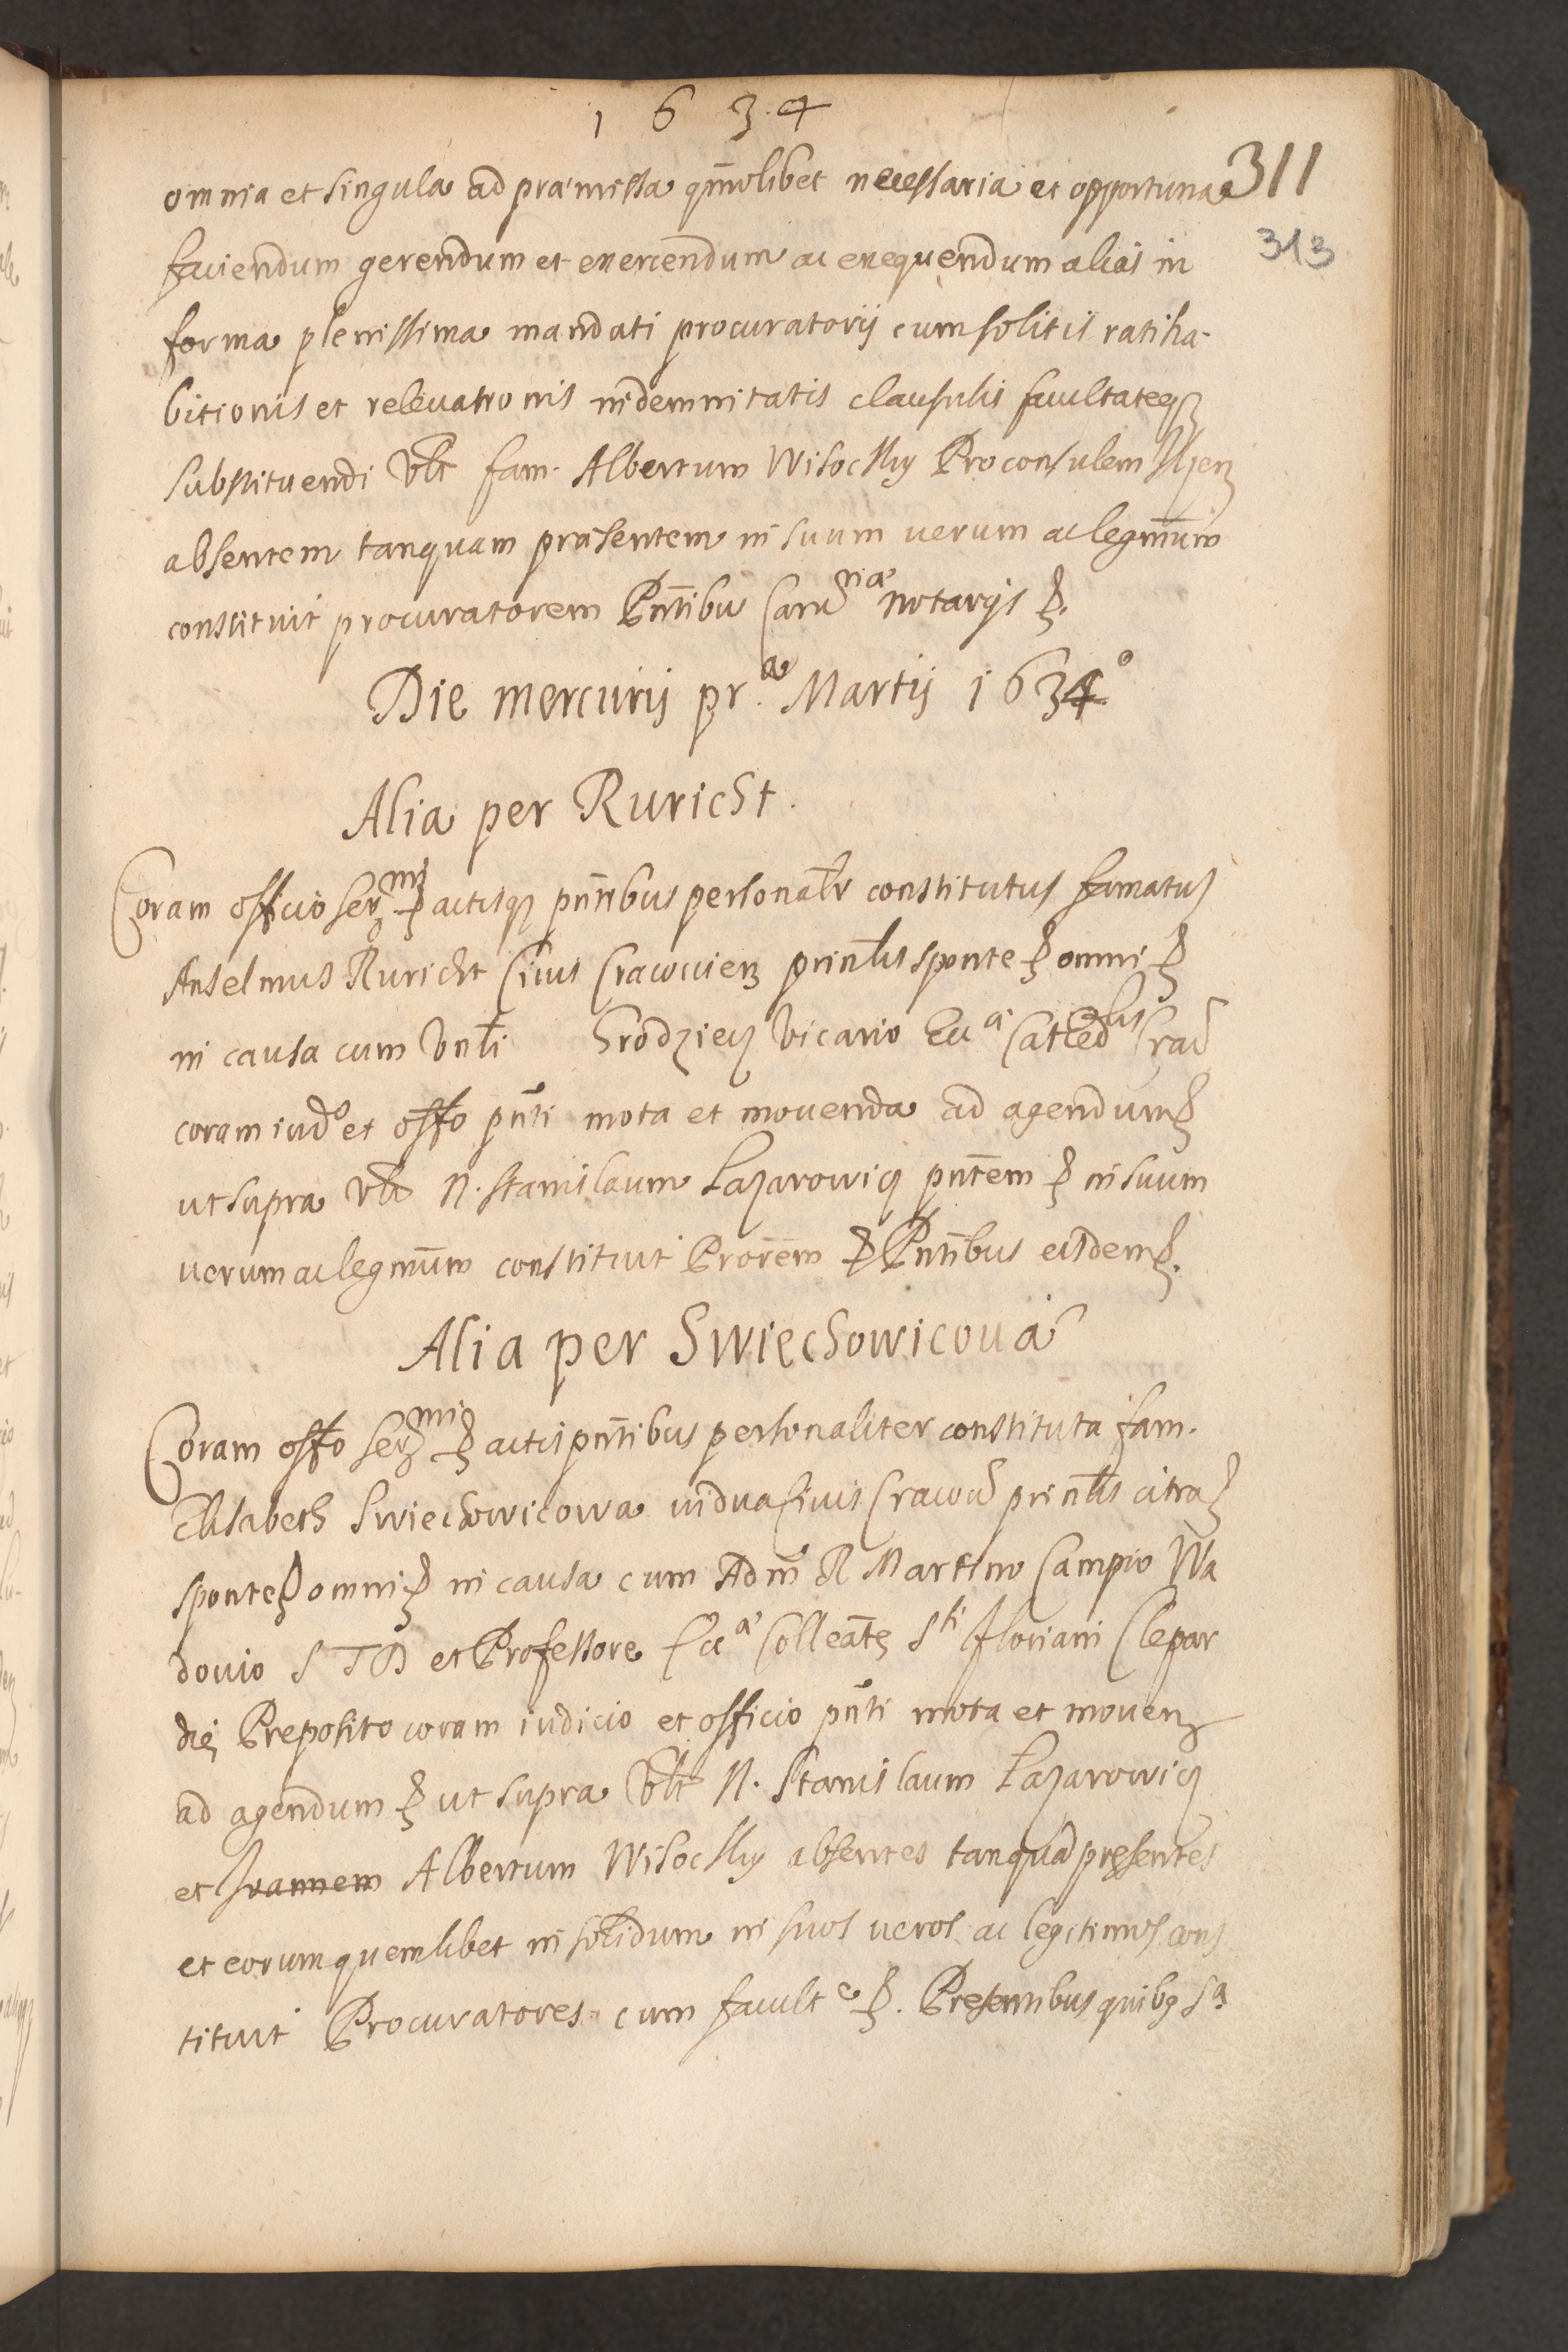 1634
311
313
omnia et singula ad præmissa qm̄olibet necessaria et opportuna
faciendum gerendum et exercendum ac exequendum alias in
forma plenissima mandati procuratorij cum solitis ratiha-
bitionis et relevationis indemnitatis clausulis facultateqꝫ
substituendi Vlt fam. Albertum Wisocky Proconsulem
absentem tanquam præsentem in suum uerum ac legm̄um
constituit procuratorem Pn̄tibu notarijs ꝑ.
Die mercurij pr.a Martij 1634°
Alia per Ruricht.
Coram officio Sermi ꝑ actisqꝫ pn̄tibus personalr constitutus famatus
Anselmus Ruricht Ciuis Cracouien prin̄lis sponte ꝑ omni ꝑ
in causa cum Vnli Grodziecz Vicario Ecae Cathedlis Crac
coram iudo et offo pn̄ti mota et mouenda ad agendum ꝑ
ut supra Vlt N. Stanislaum Lazarowicz pn̄tem ꝑ in suum
uerum ac legm̄um constituit Prorēm ꝑ Pn̄tibus eisdem ꝑ.
Alia per Swiechowicoua
Coram offo Sermi ꝑ actis pn̄tibus personaliter constituta fam.
Elisabeth Swiechowicowa uidua Ciuis Cracou prin̄lis citra ꝑ
sponte ꝑ omni ꝑ in causa cum Adm̄ R Martino Campio Wa
douio STD et Professore Ecae Colleāte Sti Floriani Clepar
dię Preposito coram iudicio et officio pn̄ti mota et mouen
ad agendum ꝑ ut supra Vlt N. Stanislaum Lazarowicz
et Ioannem Albertum Wisocky absentes tanquā pręsentes
et eorum quemlibet in solidum in suos ueros ac legitimos cons
tituit Procuratores cum facult e ꝑ. Pręsentibus quibꝫ sa